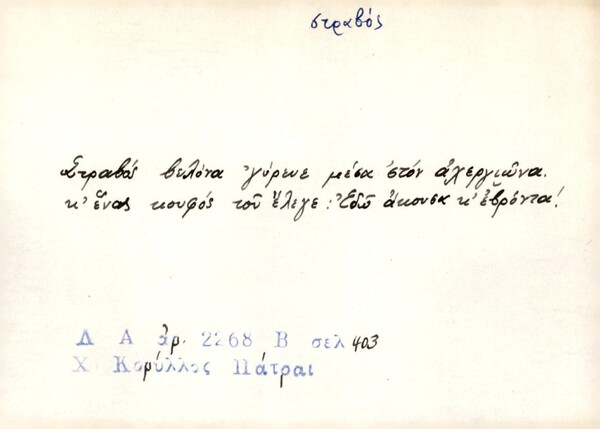 στραβός
Στραβός βελόνα 'γύρευε μέσα 'στόν ἀχεργιῶνα.
κ' ἕνας κουφός τοῦ ἔλεγε: Ἐδῶ ἄκουσα κ' ἐβρόντα!
Δ Α ἀρ. 2268 Β σελ 403
Χ Κορύλλος Πάτραι